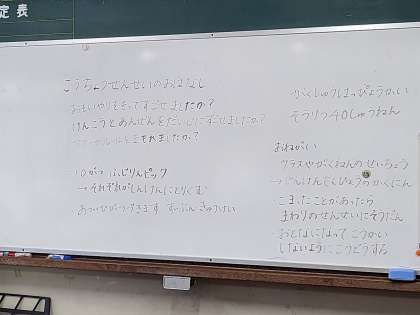 定表
こうちょうせんせいのおはなし
おもいやりをもってすごせましたか?
けんこうとあんぜんをだいじにすごせましたか?
まもれましたか?
10がつ ふじりんピック
→それぞれがしんけんにとりくむ
あついひがつづきます すいぶん きゅうけい
がくしゅうはっぴょうかい
そうりつ40しゅうねん
おねがい
クラスやがくねんのせいちょう
こまったことがあったら
まわりのせんせいにそうだん
おとなになってこうかい
しないようにこうどうする